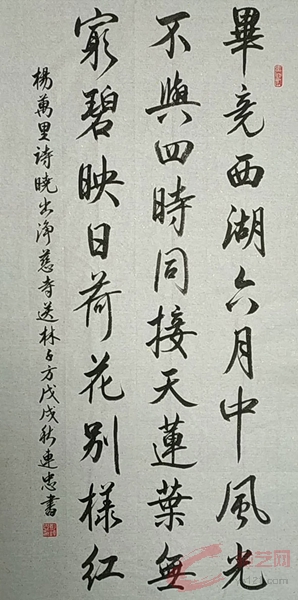 畢竟西湖六月中風光
不與四時同接天蓮葉無
窮碧映日荷花别樣紅
楊萬里詩曉出淨慈寺送林子方戊戌秋連忠書